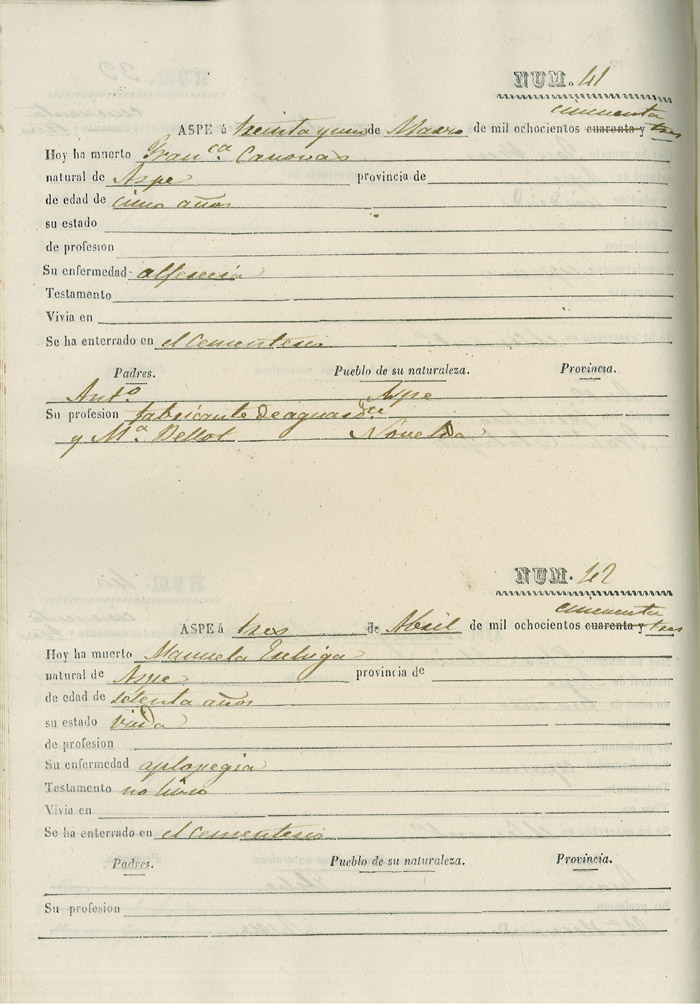 NUM. 41
cincuenta
ASPE á treinta y uno de Marzo de mil ochocientos cuarenta y tres
Hoy ha muerto Franca. Canovas
natural de Aspe provincia de
de edad de cinco años
su estado
de profesion
Su enfermedad alferecia
Testamento
Vivia en
Se ha enterrado en el Cementerio
Padres. Pueblo de su naturaleza. Provincia.
Anto. Aspe
Su profesion fabricante de aguardte
y Ma. Vellot Novelda
NUM. 42
cincuenta
ASPE á tres de Abril de mil ochocientos cuarenta y tres
Hoy ha muerto Manuela
natural de Aspe provincia de
de edad de setenta años
su estado viuda
de profesion
Su enfermedad aplopegia
Testamento no hizo
Vivia en
Se ha enterrado en el Cementerio
Padres. Pueblo de su naturaleza. Provincia.
Su profesion